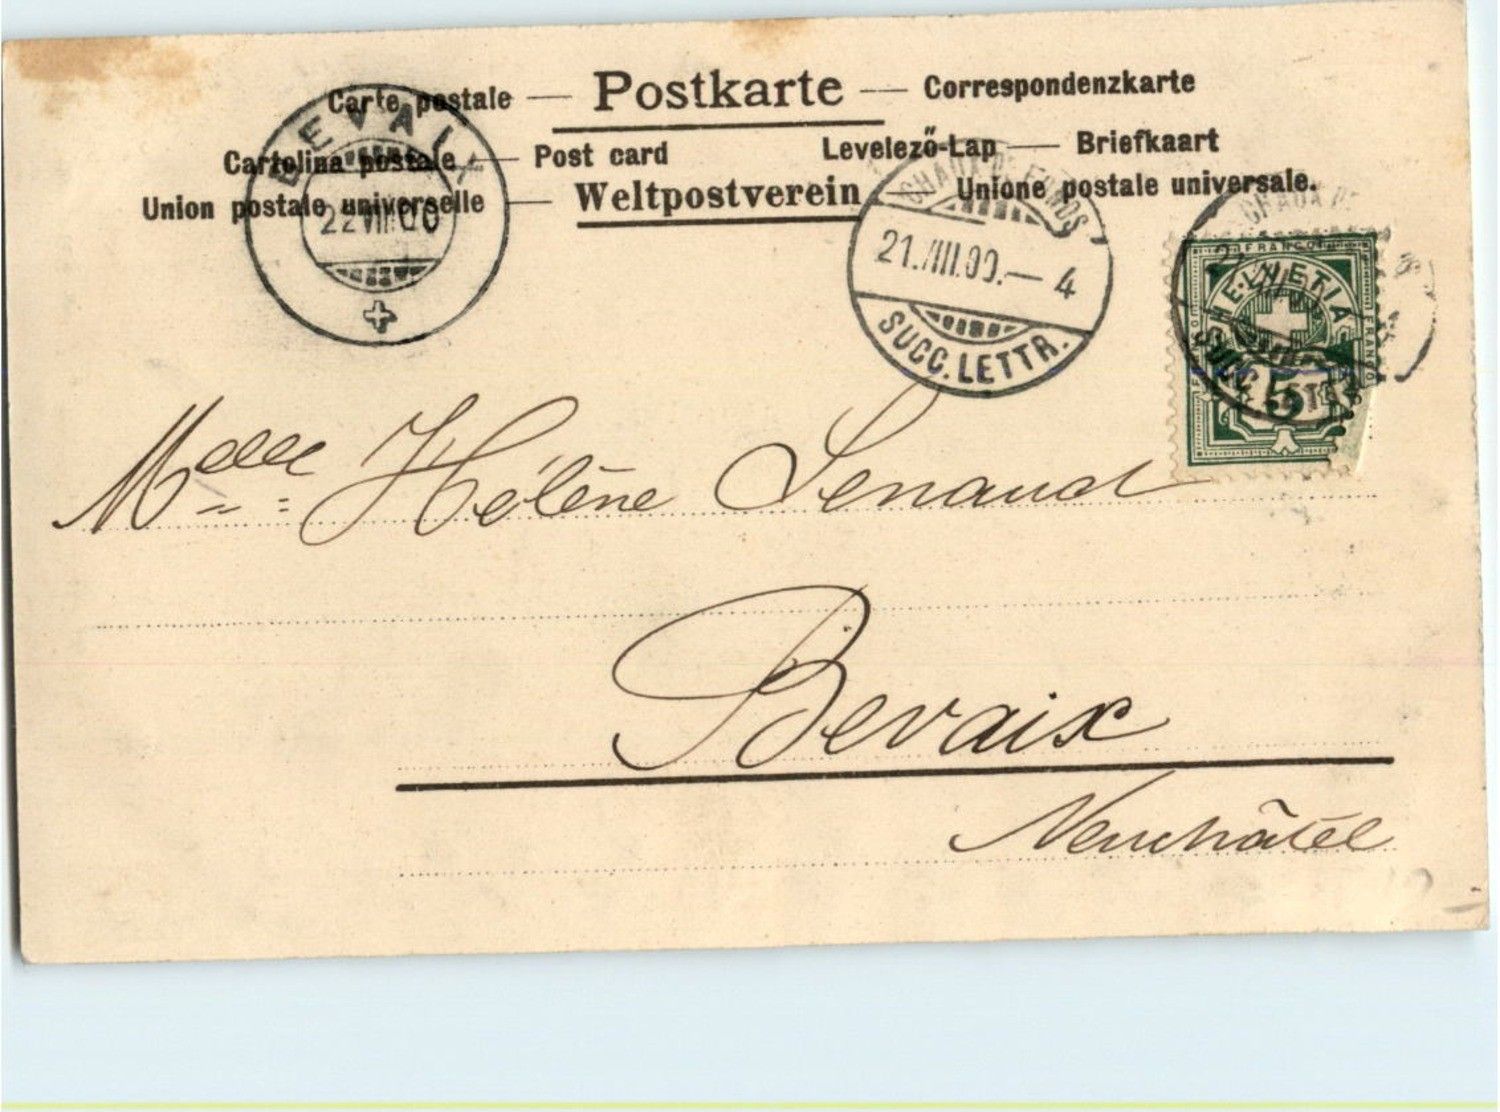 Carte postale — Postkarte — Correspondenzkarte
Cartolina postale — Post card Levelező-Lap — Briefkaart
Union postale universelle — Weltpostverein — Unione postale universale.
BEVAIX
22 VIII 00
CHAUX DE FONDS
21.VIII.00.—4
SUCC. LETTR.
CHAUX DE
SUCC. LETTR
FRANCO
HELVETIA
FRANCO
5
Mdelle Hélène Senaud
Bevaix
Neuchâtel